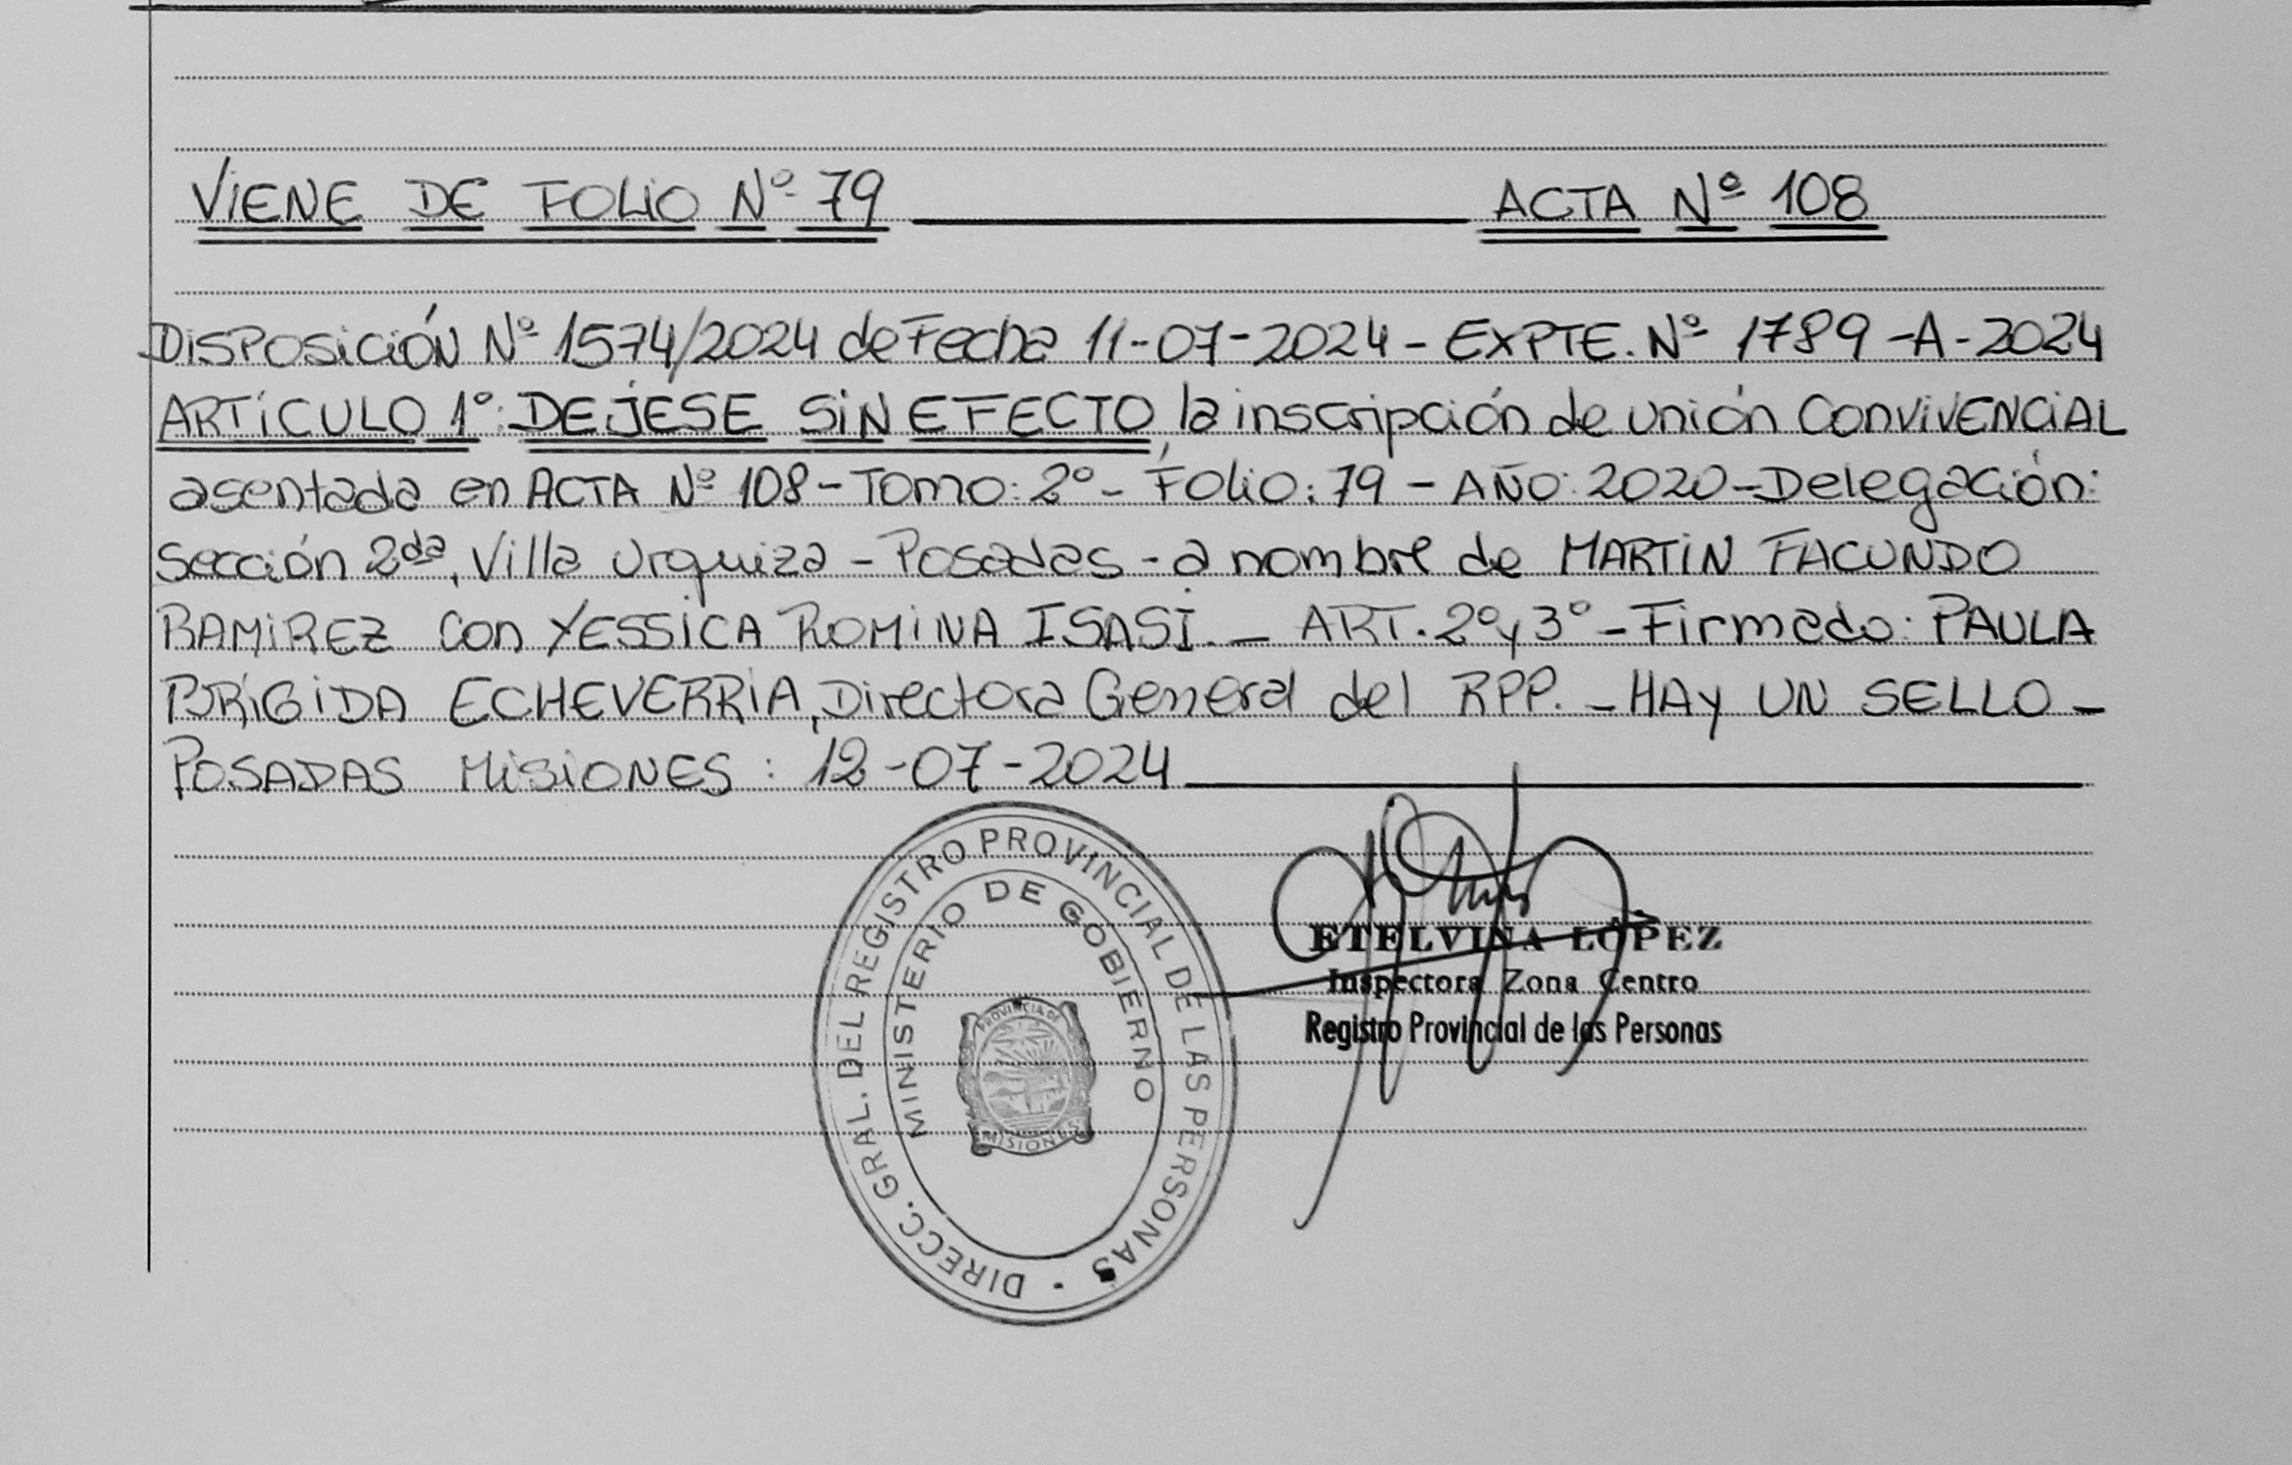 VIENE DE FOLIO Nº 79 ACTA Nº 108
DISPOSICIÓN Nº 1574/2024 de Fecha 11-07-2024 - EXPTE. Nº 1789 -A-2024
ARTÍCULO 1º: DEJESE SIN EFECTO, la inscripción de unión CONVIVENCIAL
asentada en ACTA Nº 108 - Tomo: 2º - Folio: 79 - AÑO: 2020 - Delegación:
Sección 2da, Villa Urquiza - Posadas - a nombre de MARTIN FACUNDO
RAMIREZ con YESSICA ROMINA ISASI. - ART. 2º y 3º - Firmado: PAULA
BRÍGIDA ECHEVERRIA, Directora General del RPP. - HAY UN SELLO -
POSADAS MISIONES: 12-07-2024
DIRECC. GRAL. DEL REGISTRO PROVINCIAL DE LAS PERSONAS
MINISTERIO DE GOBIERNO
PROVINCIA DE
MISIONES
ETELVINA LÓPEZ
Inspectora Zona Centro
Registro Provincial de las Personas